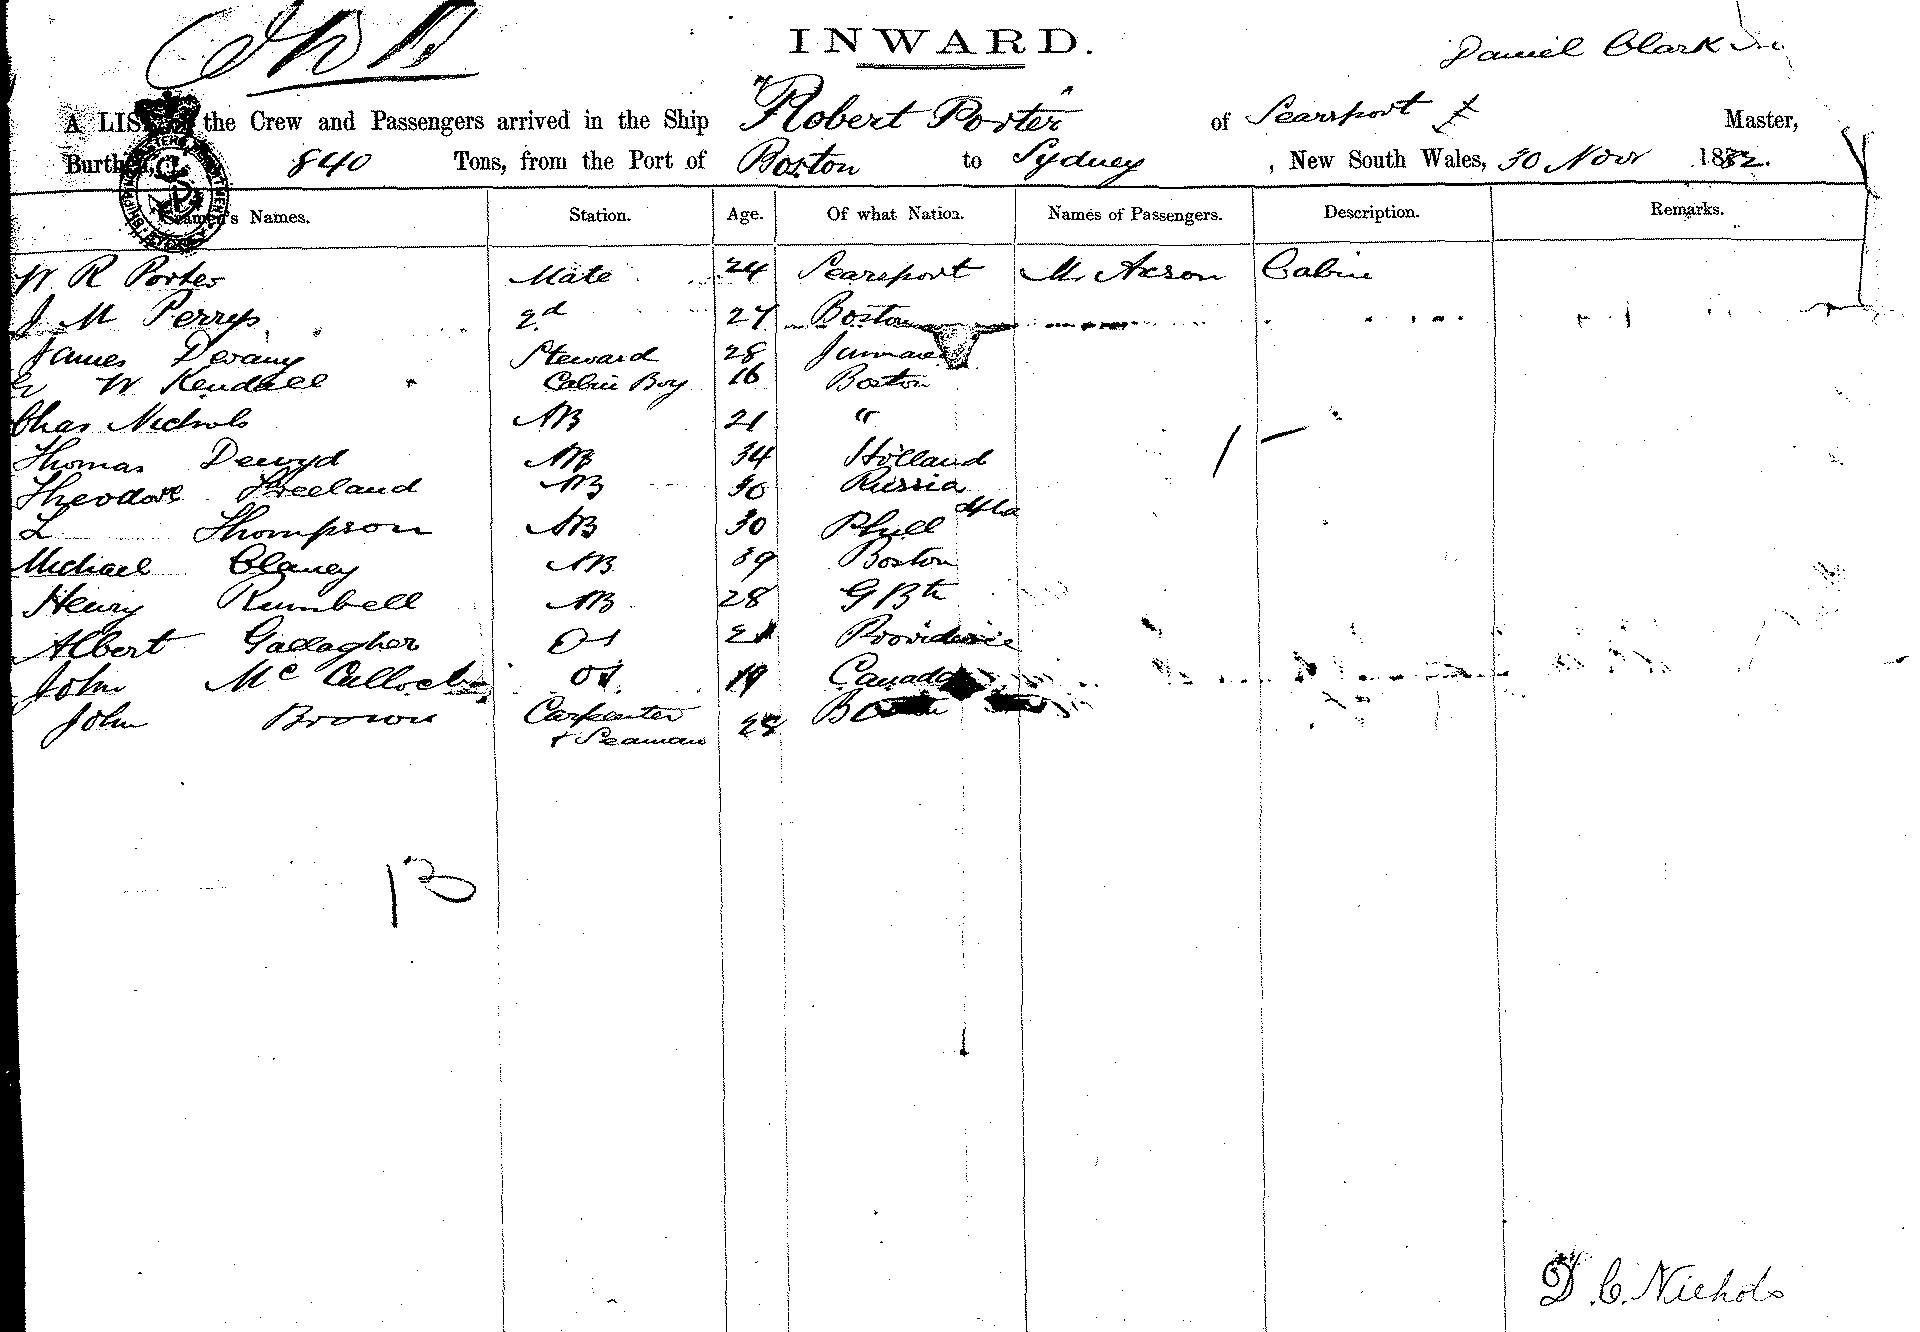 INWARD.
Daniel Clark
A LIS the Crew and Passengers arrived in the Ship "Robert Porter" of Searsport Master,
Burthen, 840 Tons, from the Port of Boston to Sydney, New South Wales, 30 Novr 1882.
Seamen's Names. Station. Age. Of what Nation. Names of Passengers. Description. Remarks.
W R Porter Mate 24 Searsport M. Axson Cabin
J M Perrys 2d 27 Boston
James Devany Steward 28
W Kendall Cabin Boy 16 Boston
Chas Nichols AB 21 "
Thomas Dewyd AB 34 Holland
Theodore Freeland AB 30 Russia
L Thompson AB 30 Phill dela
Michael Clancy AB 39 Boston
Henry Rumbell AB 28 G Btn
Albert Gallagher OS 21 Providence
John McCulloch OS 19 Canada
John Brown Carpenter 28 Boston
& Seaman
13
D. C. Nichols